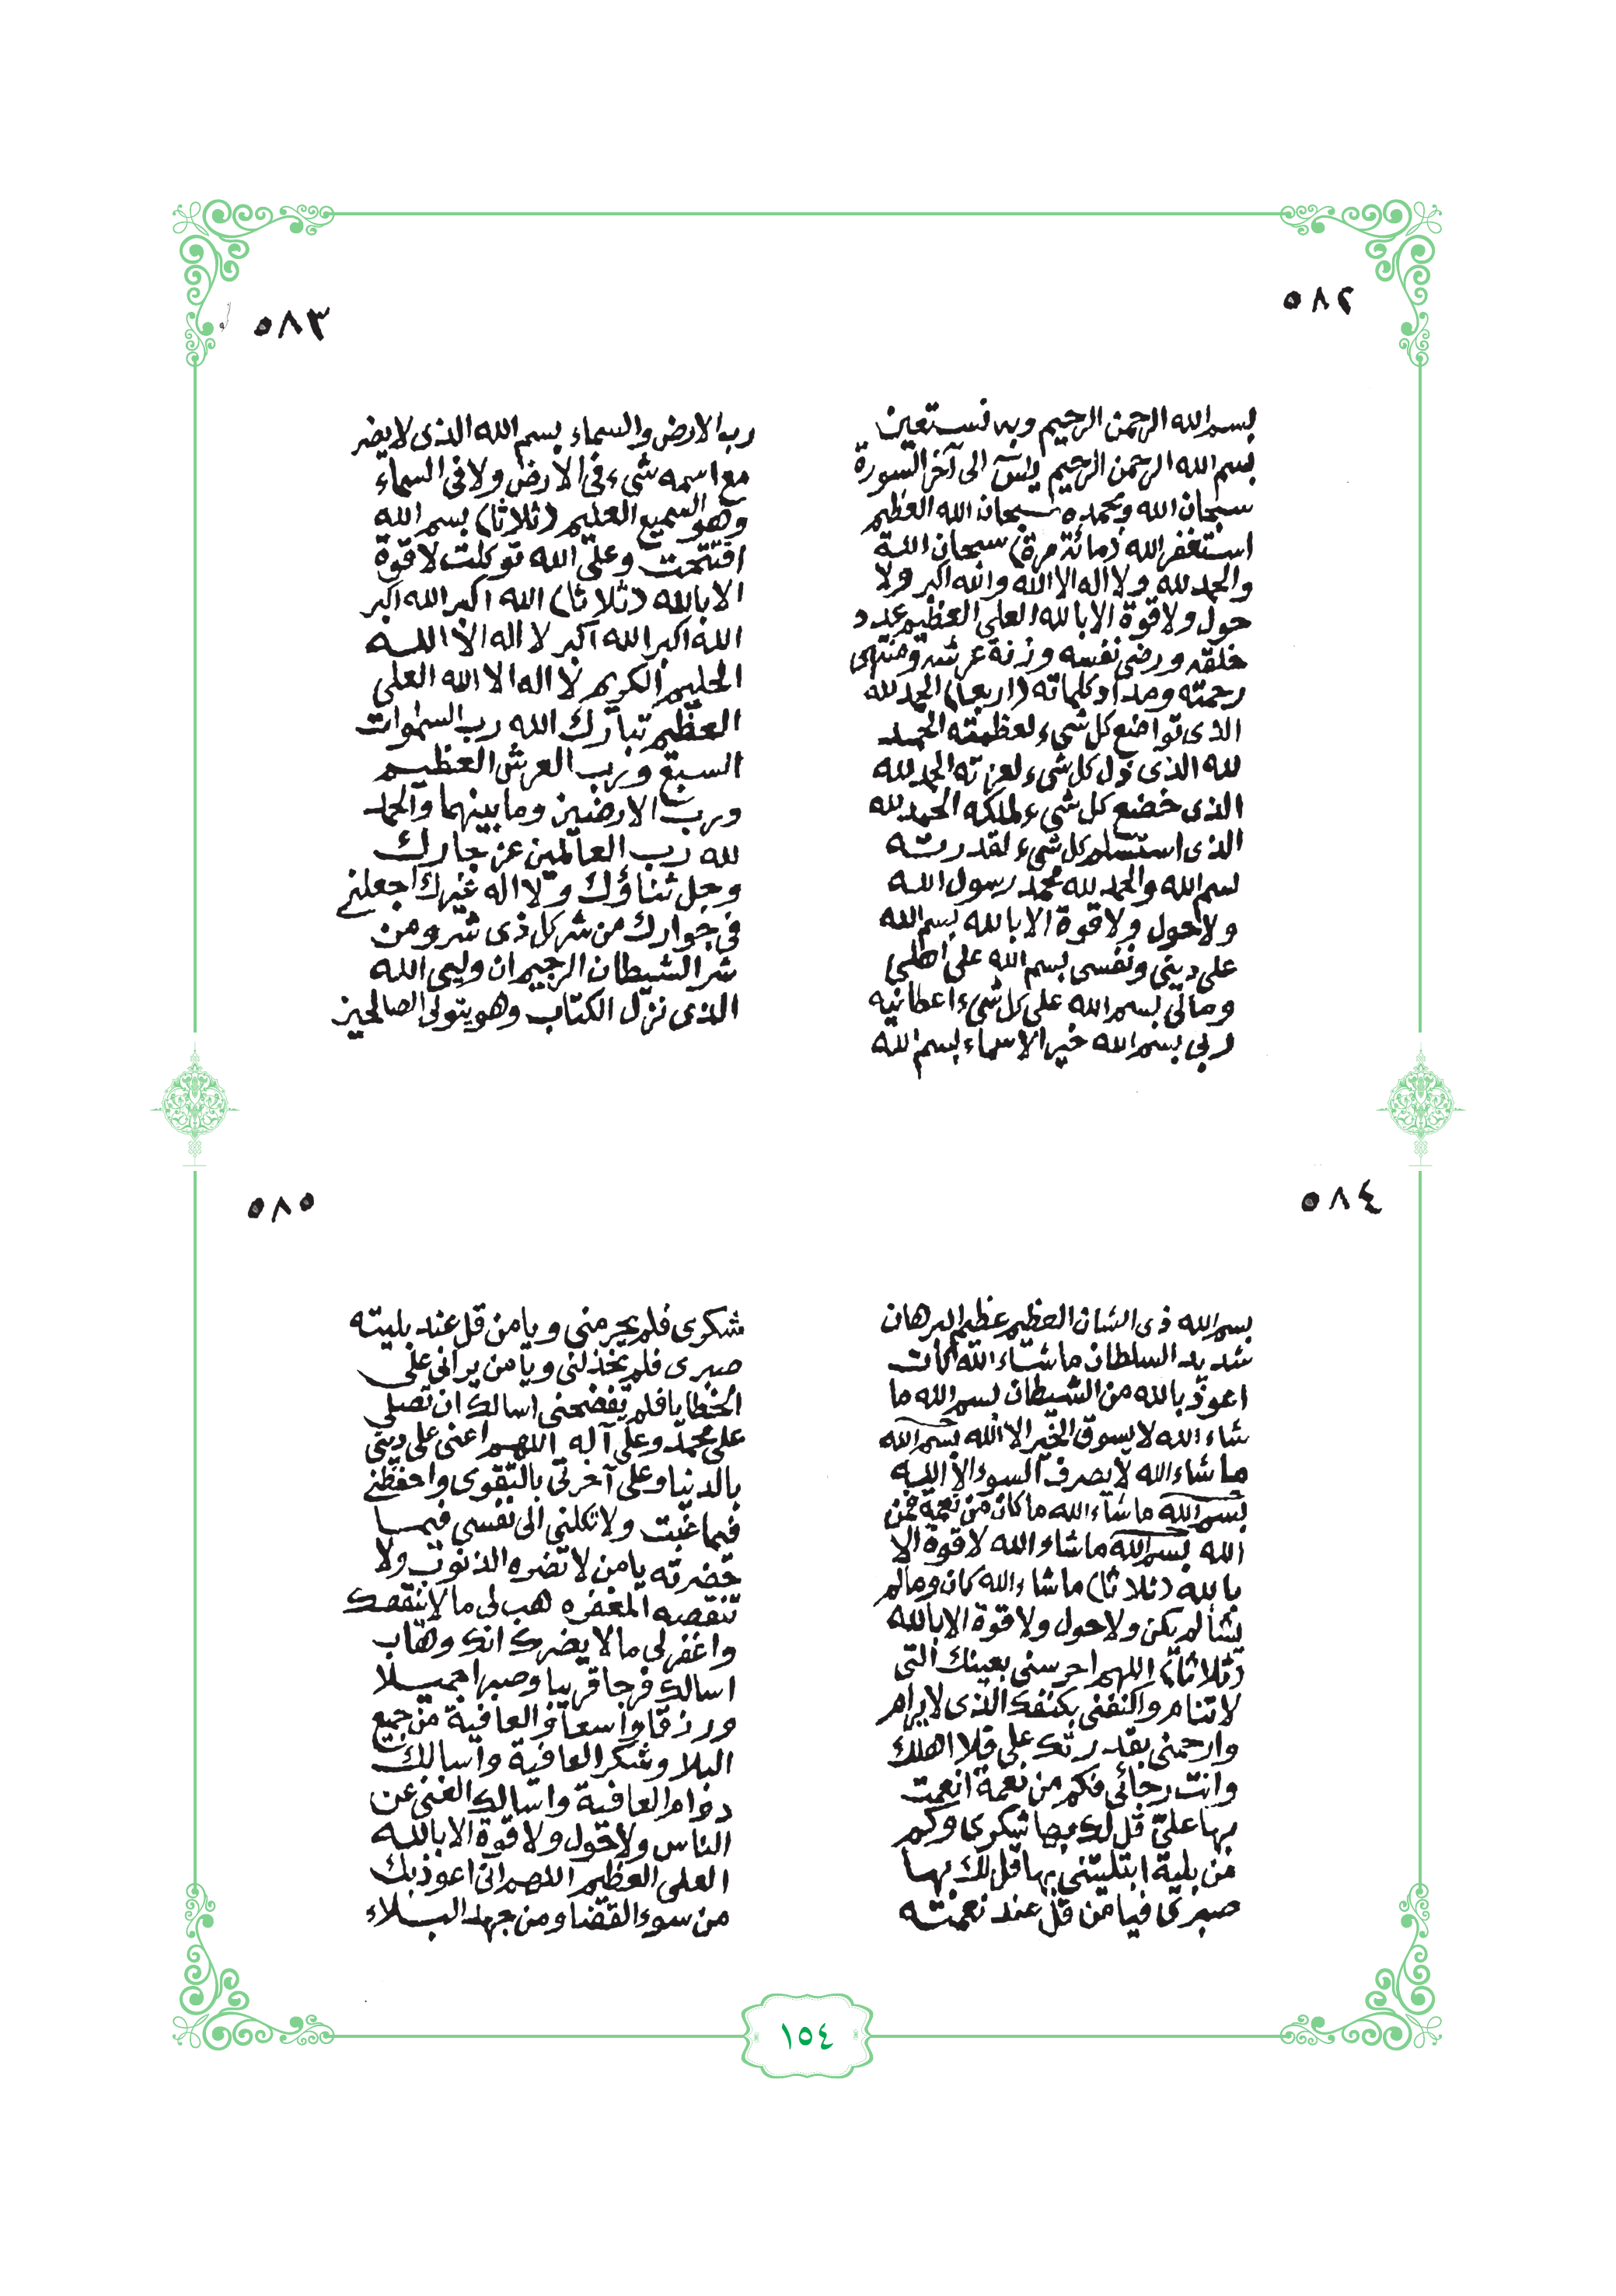 ٥٨٢
بسم الله الرحمن الرحيم وبه نستعين
بسم الله الرحمن الرحيم يس الى آخر السورة
سبحان الله وبحمده سبحان الله العظيم
استغفر الله (مائة مرة) سبحان الله
والحمد لله ولا اله الا الله والله اكبر ولا
حول ولا قوة الا بالله العلي العظيم عدد
خلقه ورضى نفسه وزنة عرشه ومنتهى
رحمته ومداد كلماته (اربعا) الحمد لله
الذى تواضع كل شيء لعظمته الحمد
لله الذى ذل كل شيء لعزته الحمد لله
الذى خضع كل شيء لملكه الحمد لله
الذى استسلم كل شيء لقدرته
بسم الله والحمد لله محمد رسول الله
ولا حول ولا قوة الا بالله بسم الله
على ديني ونفسى بسم الله على اهلي
ومالي بسم الله على كل شيء اعطانيه
ربي بسم الله خير الاسماء بسم الله
٥٨٣
رب الارض والسماء بسم الله الذى لا يضر
مع اسمه شيء فى الارض ولا فى السماء
وهو السميع العليم (ثلاثا) بسم الله
افتتحت وعلى الله توكلت لا قوة
الا بالله (ثلاثا) الله اكبر الله اكبر
الله اكبر الله اكبر لا اله الا الله
الحليم الكريم لا اله الا الله العلي
العظيم تبارك الله رب السموات
السبع ورب العرش العظيم
ورب الارضين وما بينهما والحمد
لله رب العالمين عز جارك
وجل ثناؤك ولا اله غيرك اجعلني
في جوارك من شر كل ذى شر ومن
شر الشيطان الرجيم ان وليى الله
الذى نزل الكتاب وهو يتولى الصالحين
٥٨٤
بسم الله ذى الشان العظيم عظيم البرهان
شديد السلطان ما شاء الله كان
اعوذ بالله من الشيطان بسم الله ما
شاء الله لا يسوق الخير الا الله بسم الله
ما شاء الله لا يصرف السوء الا الله
بسم الله ما شاء الله ما كان من نعمة فمن
الله بسم الله ما شاء الله لا قوة الا
بالله (ثلاثا) ما شاء الله كان وما لم
يشأ لم يكن ولا حول ولا قوة الا بالله
(ثلاثا) اللهم احرسني بعينك التي
لا تنام واكنفنى بكنفك الذى لا يرام
وارحمنى بقدرتك علي فلا اهلك
وانت رجائي فكم من نعمة انعمت
بها علي قل لك بها شكرى وكم
من بلية ابتليتني بها قل لك بها
صبرى فيا من قل عند نعمته
٥٨٥
شكرى فلم يحرمني ويا من قل عند بليته
صبرى فلم يخذلني ويا من يراني على
الخطايا فلم يفضحني اسالك ان تصلي
على محمد وعلى آله اللهم اعنى على ديني
بالدنيا وعلى آخرتي بالتقوى واحفظني
فيما غبت ولا تكلني الى نفسي فيما
حضرته يا من لا تضره الذنوب ولا
تنقصه المغفره هب لى ما لا ينقصك
واغفر لى ما لا يضرك انك وهاب
اسالك فرجا قريبا وصبرا جميلا
ورزقا واسعا والعافية من جميع
البلا وشكر العافية واسالك
دوام العافية واسالك الغنى عن
الناس ولا حول ولا قوة الا بالله
العلى العظيم اللهم اني اعوذ بك
من سوء القضا ومن جهد البلاء
١٥٤